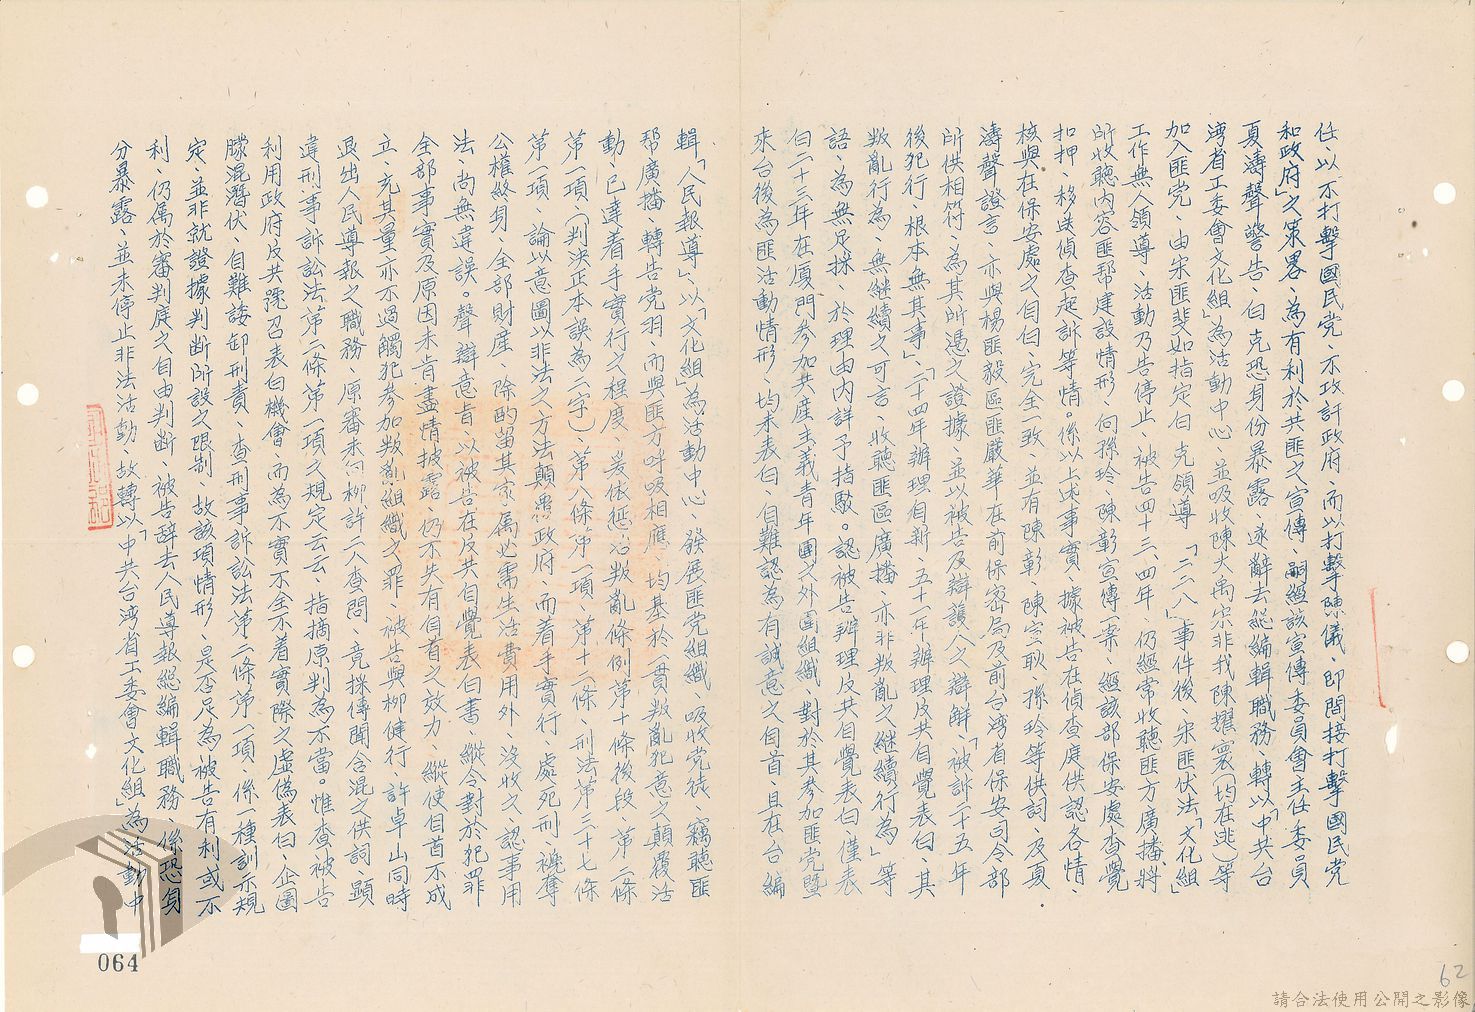 任、以不打擊國民党、不攻訐政府、而以打擊陳儀、即間接打擊國民党
和政府」之策畧、為有利於共匪之宣傳、嗣經該宣傳委員會主任委員
夏濤聲警告、白克恐身份暴露、遂辭去總編輯職務、轉以「中共台
湾省工委會文化組」為活動中心、並吸收陳大禹宋非我陳耀寰(均在逃)等
加入匪党、由宋匪斐如指定白克領導、「二二八」事件後、宋匪伏法「文化組」
工作無人領導、活動乃告停止、被告四十三、四年、仍經常收聽匪方廣播、將
所收聽內容匪帮建設情形、向孫玲、陳彰宣傳一案、經該部保安處查覺
扣押、移送偵查起訴等情。係以上述事實、據被告在偵查庭供認各情、
核與在保安處之自白、完全一致、並有陳彰、陳宣耿、孫玲等供詞、及夏
濤聲證言、亦與楊匪毅區匪嚴華在前保密局及前台湾省保安司令部
所供相符、為其所憑之證據、並以被告及辯護人之辯解、「被訴二十五年
後犯行、根本無其事」、「二十四年辦理自新、五十一年辦理反共自覺表白、其
叛亂行為、無繼續之可言、收聽匪區廣播、亦非叛亂之継續行為」等
語、為無足採、於理由內詳予指駁。認被告辦理反共自覺表白、僅表
白二十三年在廈門參加共産主義青年團之外圍組織、對於其參加匪党暨
來台後為匪活動情形、均未表白、自難認為有誠意之自首、且在台編
輯「人民報導」、以「文化組」為活動中心、發展匪党組織、吸收党徒、竊聽匪
帮廣播、轉告党羽、而與匪方呼吸相應、均基於一貫叛亂犯意之顛覆活
動、已達着手實行之程度、爰依惩治叛亂條例第十條後段、第二條
第一項、(判決正本誤為二字)、第八條第一項、第十二條、刑法第三十七條
第一項、論以意圖以非法之方法顛覆政府、而着手實行、處死刑、褫奪
公權終身、全部財産、除酌留其家属必需生活費用外、沒收之、認事用
法、尚無違誤。聲辯意旨、以被告在反共自覺表白書、縱令對於犯罪
全部事實及原因未肯盡情披露、仍不失有自首之效力、縱使自首不成
立、充其量亦不過觸犯參加叛亂組織之罪、被告與柳健行、許卓山同時
退出人民導報之職務、原審未向柳、許二人查問、竟採傳聞含混之供詞、顕
違刑事訴訟法第二條第一項之規定云云、指摘原判為不當。惟查被告
利用政府反共號召表白機會、而為不實不全不着實際之虛偽表白、企圖
朦混潛伏、自難諉卸刑責、查刑事訴訟法第二條第一項、係一種訓示規
定、並非就證據判断所設之限制、故該項情形、是否足為被告有利、或不
利、仍属於審判庭之自由判断、被告辞去人民導報總編輯職務、係恐身
分暴露、並未停止非法活動、故轉以「中共台湾省工委會文化組」為活動中
064
62
請合法使用公開之影像